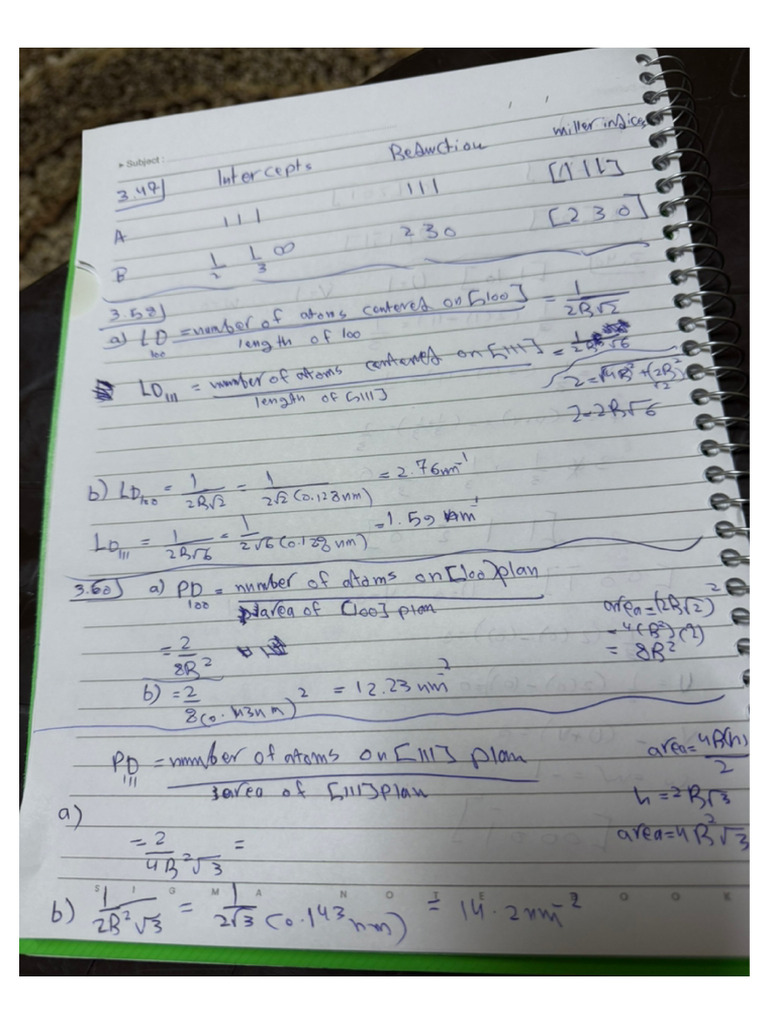 ▸ Subject :
3.47 Intercepts Reduction miller indices
A 111 111 [111]
B 1/2 1/3 ∞ 230 [230]
3.58
a) LD100 = number of atoms centered on [100] / length of 100 = 1/2R√2
LD111 = number of atoms centered on [111] / length of [111] = 1/2R√6
2=2R√6
b) LD100 = 1/2R√2 = 1/2√2(0.128nm) = 2.76nm⁻¹
LD111 = 1/2R√6 = 1/2√6(0.128nm) = 1.59 nm⁻¹
3.60 a) PD100 = number of atoms on [100) plan / area of [100] plan
area=(2R√2)²
= 4(R²)(2)
= 8R²
= 2/8R²
b) = 2/8(0.143nm)² = 12.23 nm⁻²
PD111 = number of atoms on [111] plan / area of [111] plan
area= 4R(h)/2
h=2R√3
area=4R²√3
a)
= 2/4R²√3 =
SIGMA NOTE BOOK
b) 1/2R²√3 = 1/2√3(0.143nm) = 14.2nm⁻²